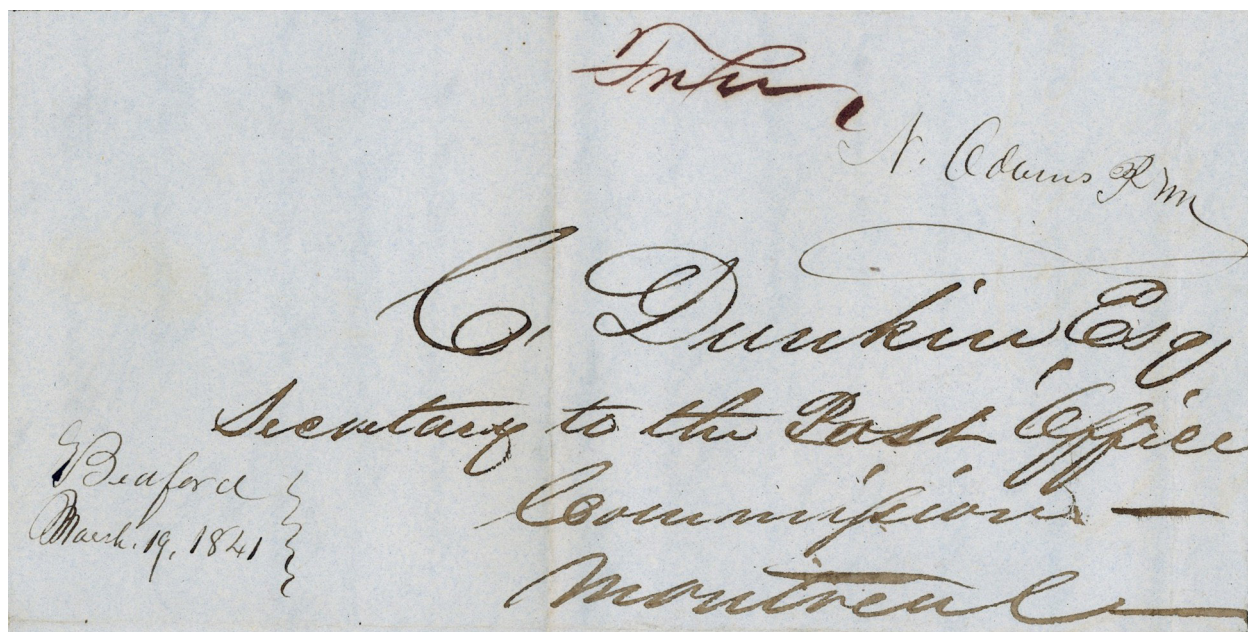 N. Adams P M
C. Dunkin Esq
Secretary to the Post Office
Commission —
Montreal
Bedford
March. 19, 1841